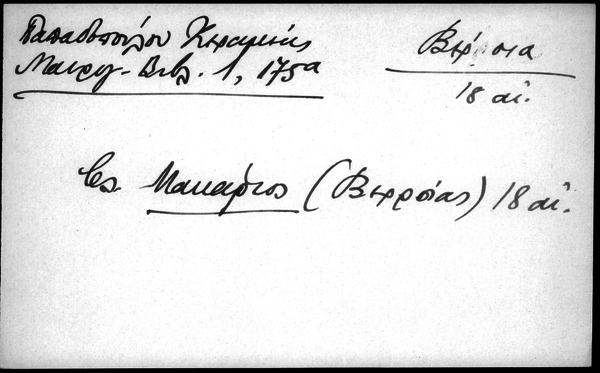 Παπαδοπούλου Κεραμεύς
Μαυρογ. Βιβλ. 1, 175α
Βέρροια
18 αἰ.
Ἐς. Μακάριος (Βερροίας) 18 αἰ.